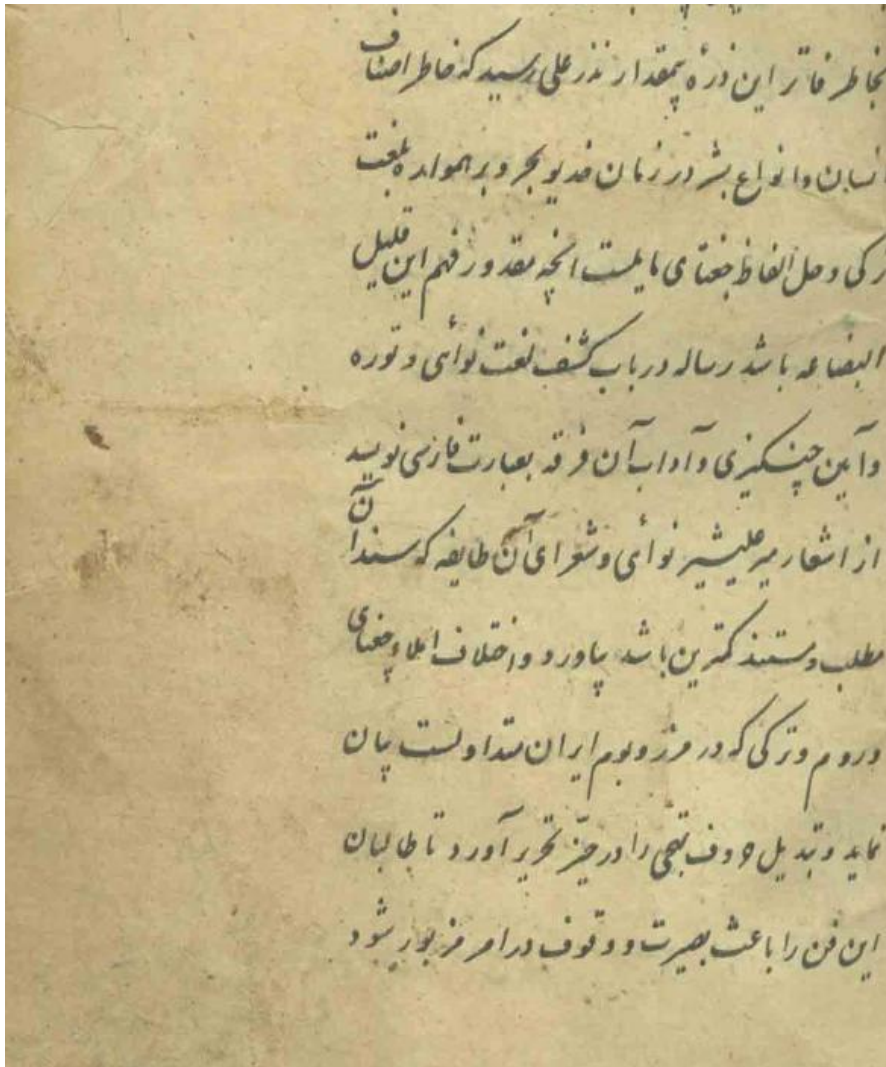 بخاطر فاتر این ذرهٔ بیمقدار نذر علی رسید که خاطر اصناف
انسان و انواع بشر در زمان خدیو بحر و بر همواره بلغت
ترکی و حل الفاظ جغتای مایلست انچه مقدور فهم این قلیل
البضاعه باشد رساله در باب کشف لغت نوائی و توره
و آیین چنگیزی و آداب آن فرقه بعبارت فارسی نویسد
از اشعار میر علیشیر نوائی و شعرای آن طایفه که سند آن
مطلب و مستند کمترین باشد بیاورد و اختلاف املاء جغتای
و روم و ترکی که در مرز و بوم ایران متداولست بیان
نماید و تبدیل حروف تهجی را در حیّز تحریر آورد تا طالبان
این فن را باعث بصیرت و وقوف در امر مزبور شود